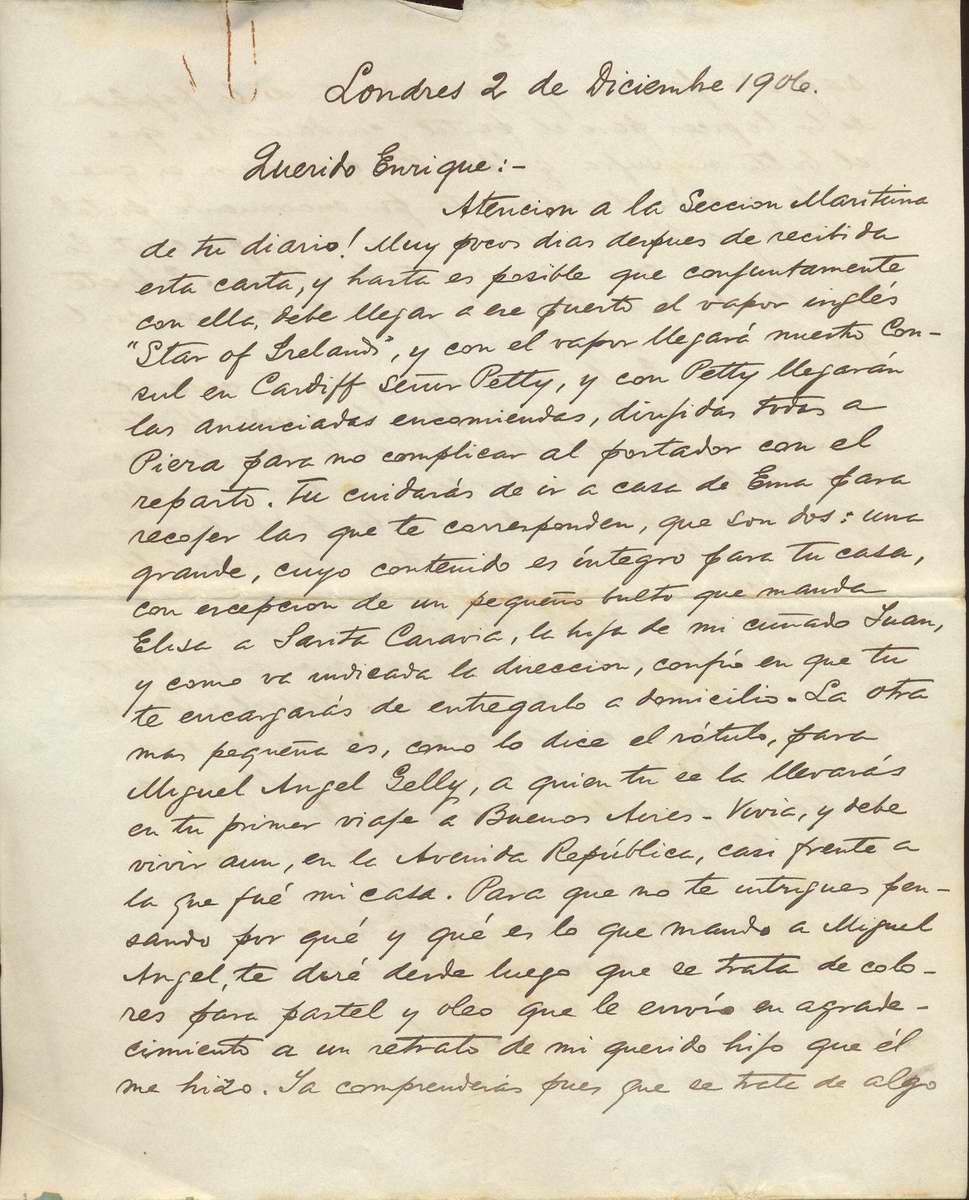 Londres 2 de Diciembre 1906.
Querido Enrique:-
Atencion a la Seccion Maritima
de tu diario! Muy pocos dias despues de recibida
esta carta, y hasta es posible que conjuntamente
con ella, debe llegar a ese puerto el vapor inglés
"Star of Ireland", y con el vapor llegará nuestro Con-
sul en Cardiff Señor Petty, y con Petty llegarán
las anunciadas encomiendas, dirijidas todas a
Piera para no complicar al portador con el
reparto. Tu cuidarás de ir a casa de Ema para
recojer las que te corresponden, que son dos: una
grande, cuyo contenido es íntegro para tu casa,
con escepcion de un pequeño bulto que manda
Elisa a Sarita Caravia, la hija de mi cuñado Juan,
y como va indicada la direccion, confío en que tu
te encargarás de entregarlo a domicilio. La otra
mas pequeña es, como lo dice el rótulo, para
Miguel Angel Gelly, a quien tu se la llevarás
en tu primer viaje a Buenos Aires - Vivia, y debe
vivir aun, en la Avenida República, casi frente a
la que fué mi casa. Para que no te intrigues pen-
sando por qué y qué es lo que mando a Miguel
Angel, te diré desde luego que se trata de colo-
res para pastel y oleo que le envío en agrade-
cimiento a un retrato de mi querido hijo que él
me hizo. Ya comprenderás pues que se trata de algo